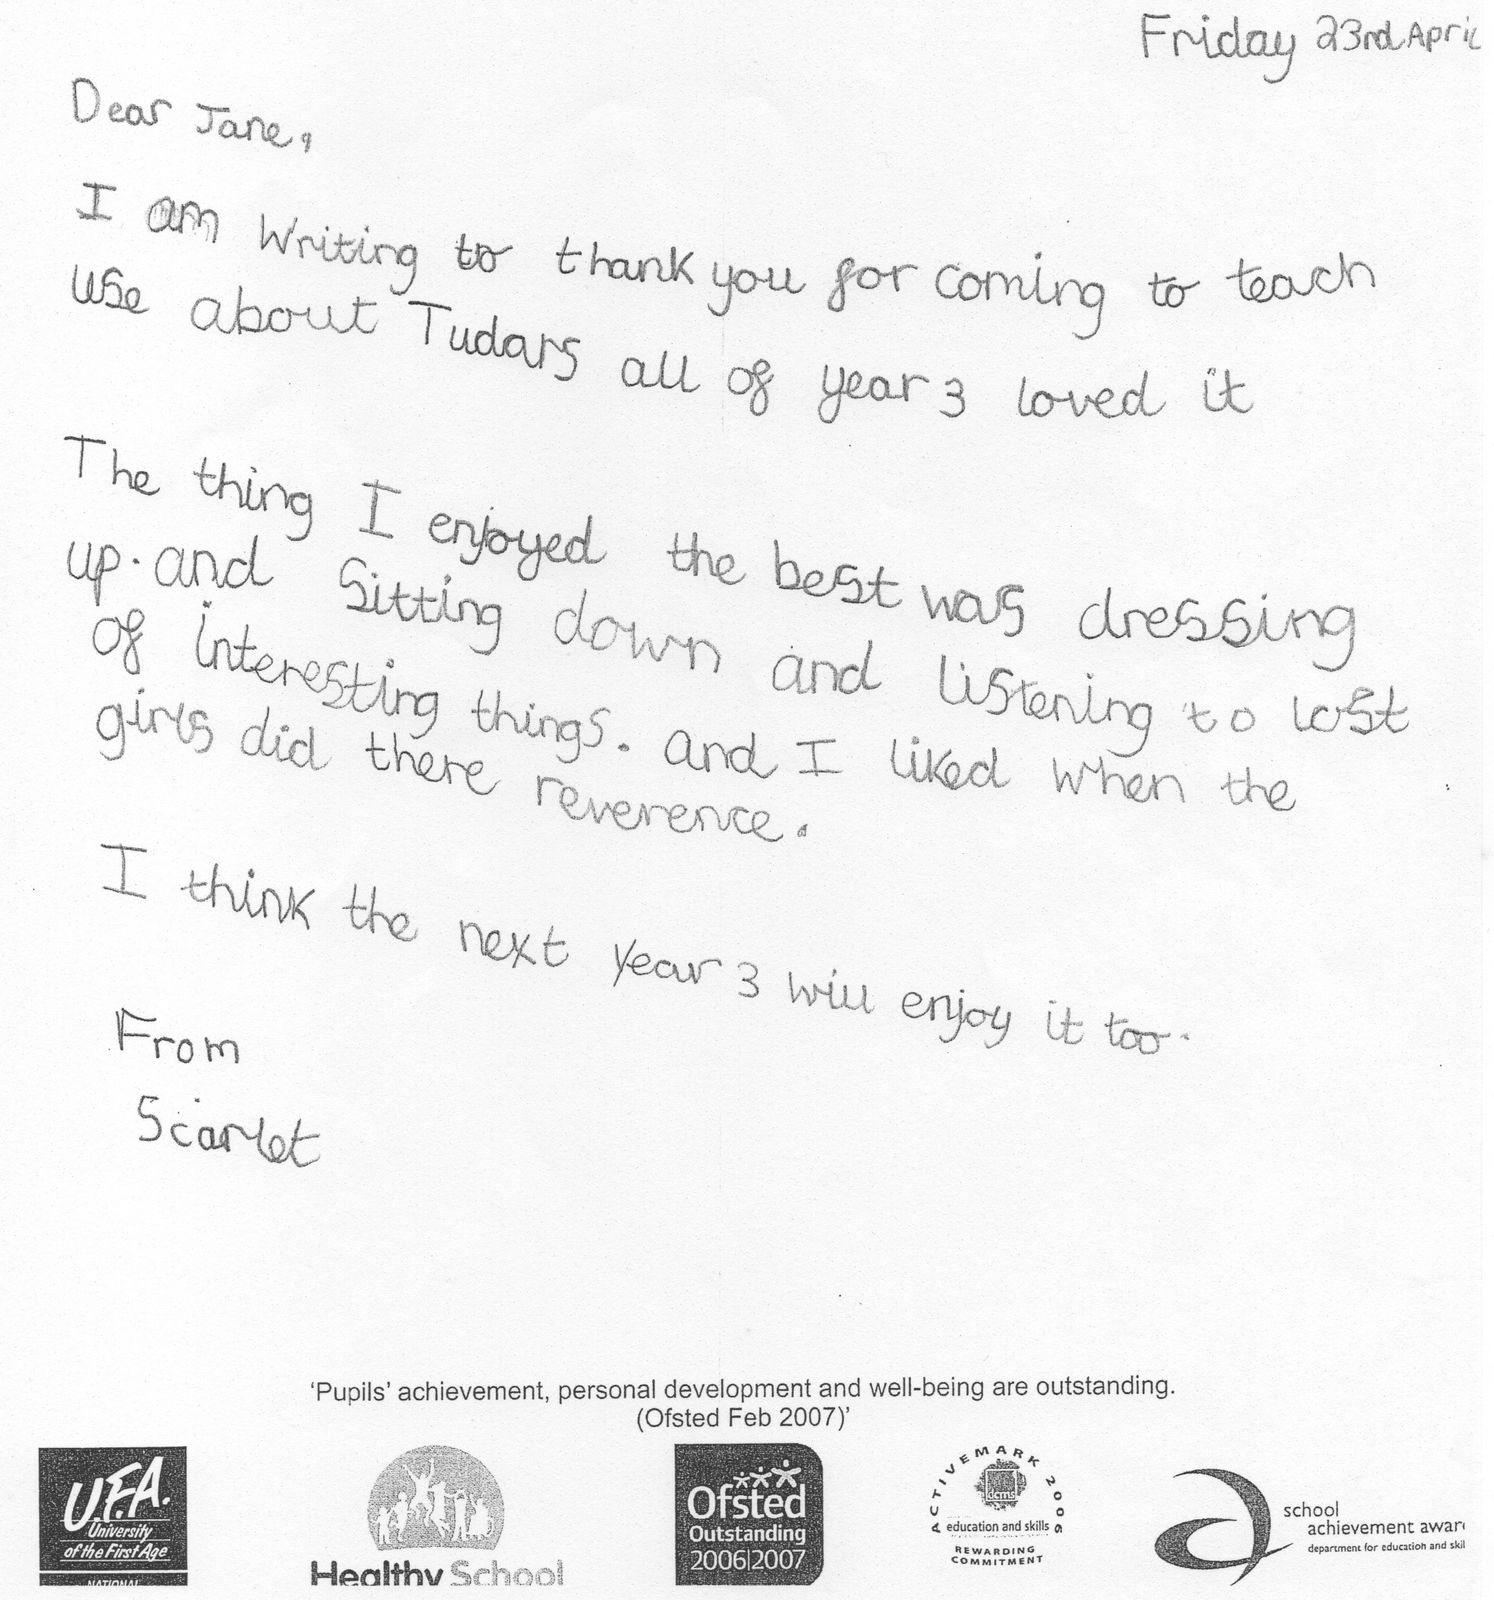 Friday 23rd April
Dear Jane,
I am Writing to thank you for coming to teach
use about Tudars all of year 3 loved it
The thing I enjoyed the best was dressing
up. and Sitting down and listening to lost
of interesting things. and I liked when the
girls did there reverence.
I think the next year 3 will enjoy it too.
From
Scarlet
'Pupils' achievement, personal development and well-being are outstanding.
(Ofsted Feb 2007)'
U.F.A.
University
of the First Age
NATIONAL
Healthy School
Ofsted
Outstanding
2006|2007
ACTIVEMARK 2006
dcms
education and skills
REWARDING
COMMITMENT
school
achievement awar
department for education and skil